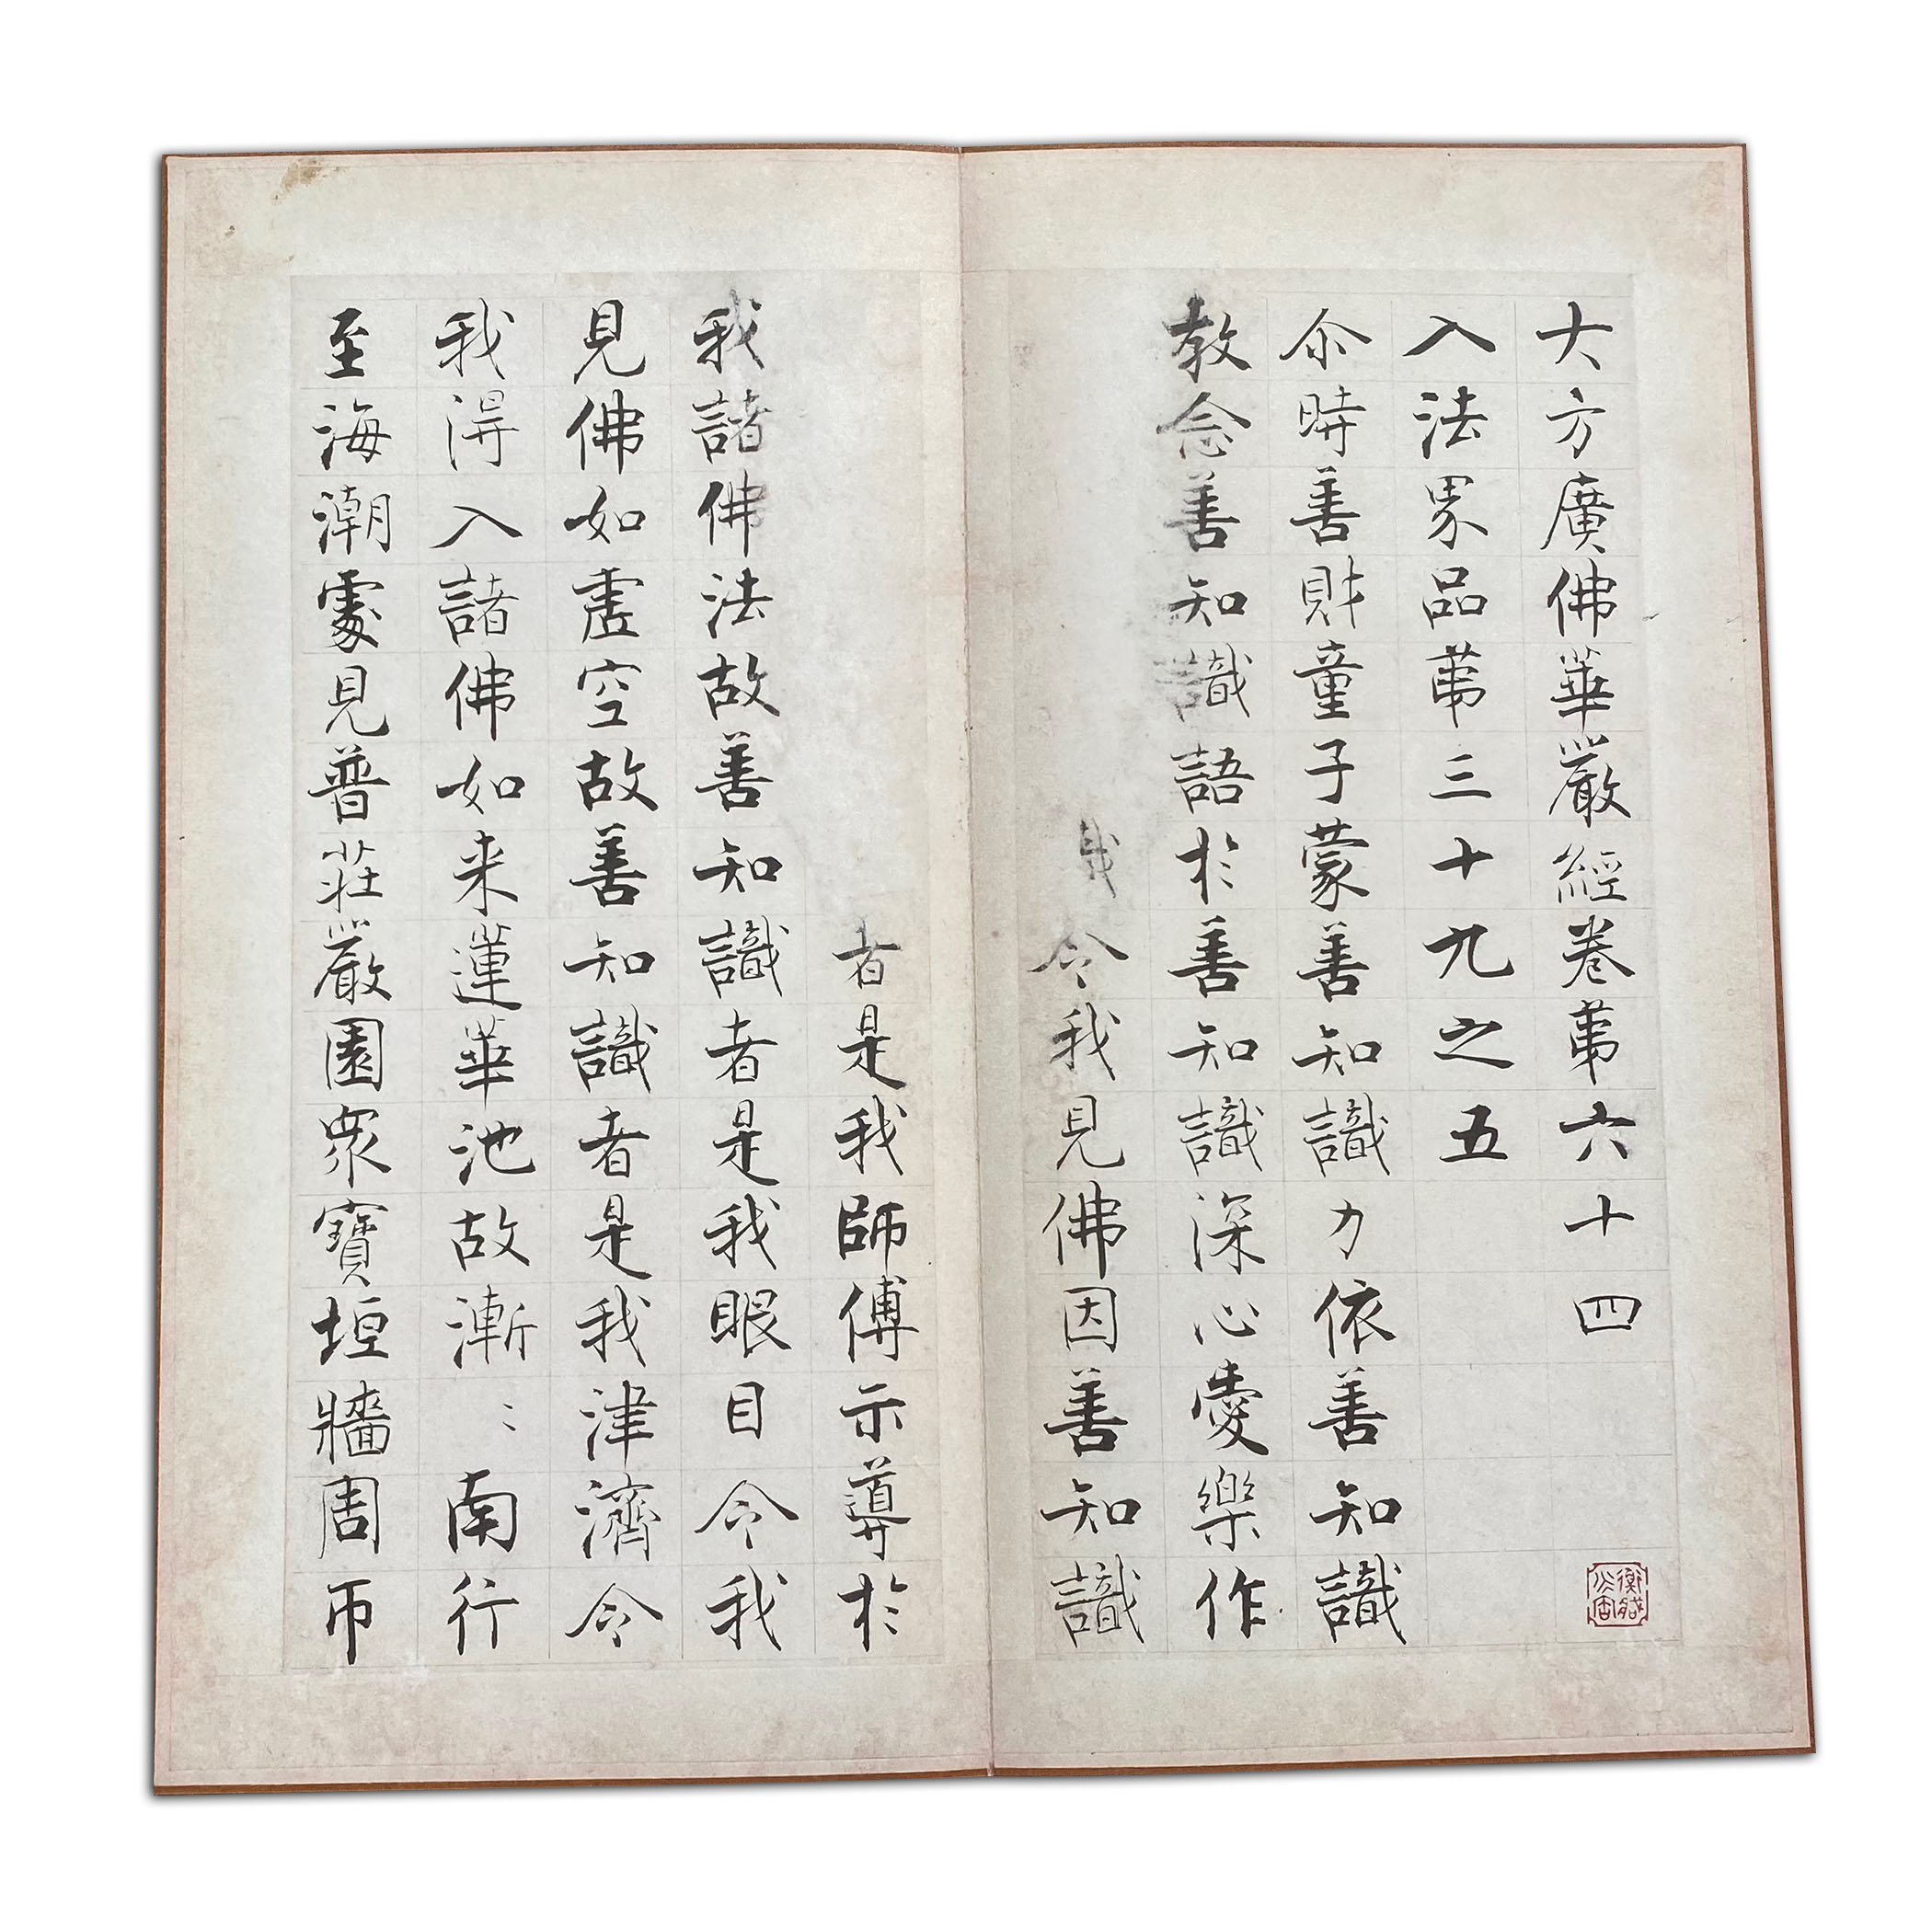 大方廣佛華嚴經卷第六十四
入法界品第三十九之五
尒時善財童子蒙善知識力依善知識
教念善知識語於善知識深心愛樂作
我令我見佛因善知識
者是我師傅示導於
我諸佛法故善知識者是我眼目令我
見佛如虛空故善知識者是我津濟令
我淂入諸佛如来蓮華池故漸〻南行
至海潮處見普莊嚴園衆寶垣牆周帀